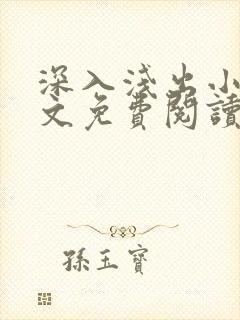 深入淺出小
文免費閱讀
孫玉寶